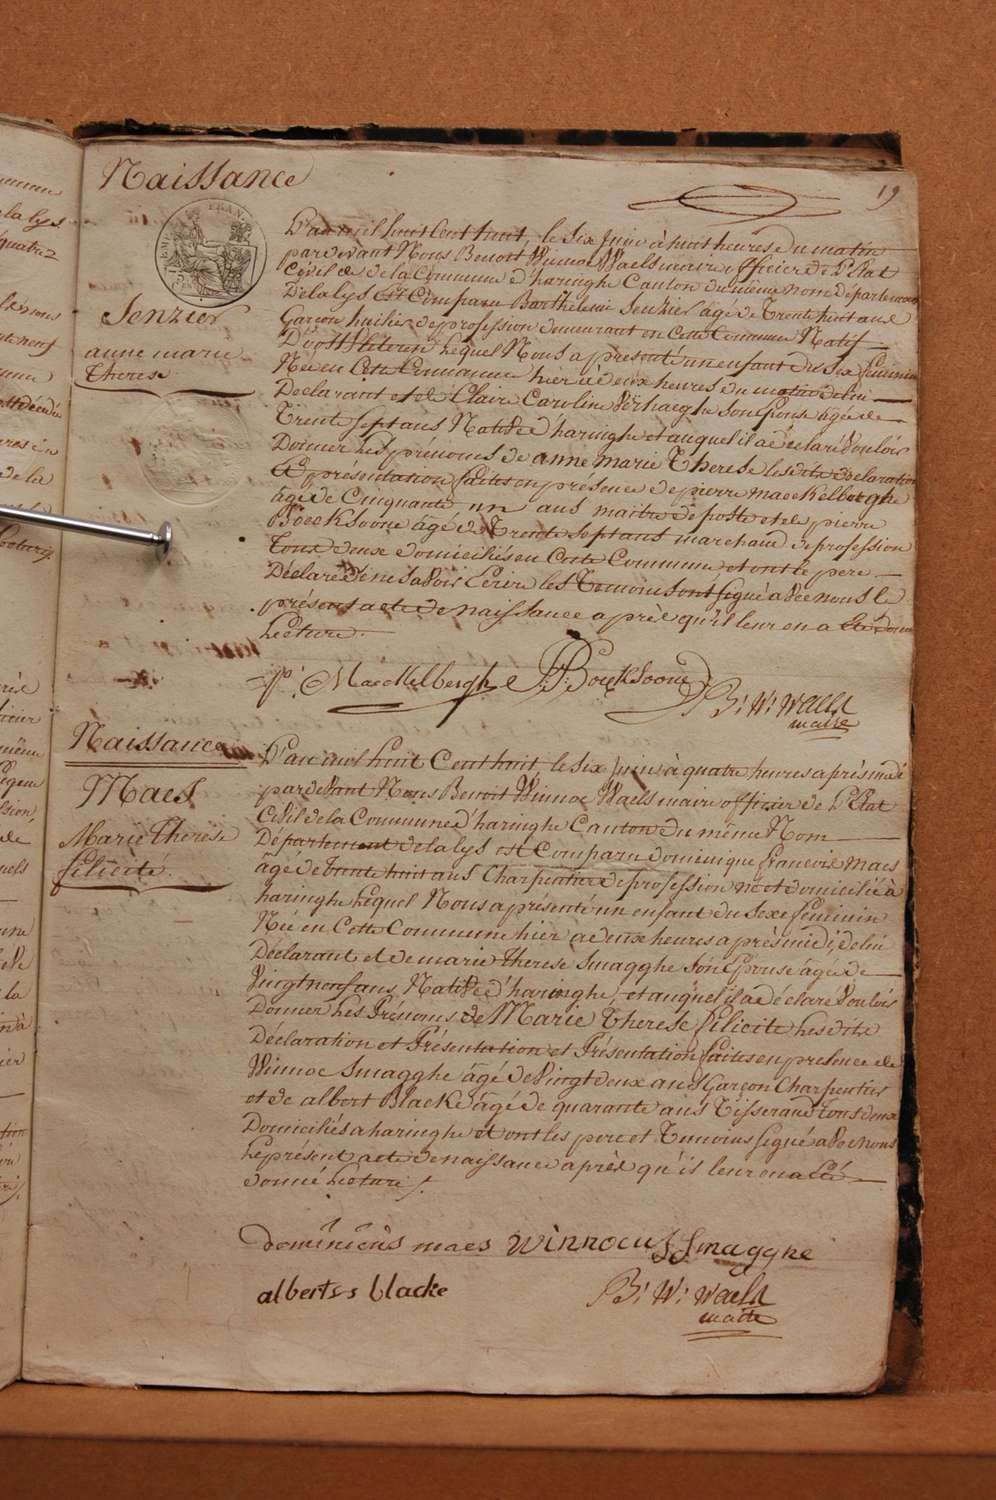 19
Naissance
Senzier
anne marie
Therese
L'an mil huit Cent huit, le Six Juin à huit heures du matin
par devant Nous Benoit Winnoc Waels maire officier de L'Etat
Civil de de la Commune d'haringhe Canton du même nom département
De la lys Est Comparu Barthelemi Senzier agé de Trente huit ans
Garçon huilier de profession demeurant en Cette Commune Natif
D'oostvleteren lequel Nous a presenté un enfant du Sex feminin
Née en Cette Commune hier à deux heures du matin de lui
Declarant et de Claire Caroline Verhaeghe Son Epouse agée de
Trente Sept ans Native d'haringhe et auquel il a déclaré Vouloir
Donner les prénoms de anne marie Therese les dite declaration
et présentation faites en présence de pierre maeckelberghe
âgé de Cinquante un ans maitre de poste et de pierre
Boecksoone âgé de Trente Sept ans marchand de profession
Tous deux domiciliés en Cette Commune et ont le pere
Déclaré de ne Savoir Ecrire les Temoins Sont Signé avec nous le
présent acte de naissance après qu'il leur en a été donné
Lecture.
p. Maeckelberghe P: Boeksoone
B: W: Waels
maire
Naissance
Maes
Marie Therese
felicité
L'an mil huit Cent huit, le Six Juin à quatre heures après midi
par devant Nous Benoit Winnoc Waels maire officier de L'Etat
Civil de la Commune d'haringhe Canton du même Nom
Département de la lys est Comparu dominique francois maes
âgé de trente huit ans Charpentier de profession né et domicilié à
haringhe lequel Nous a présenté un enfant du Sexe feminin
Née en Cette Commune hier a deux heures après midi de lui
Déclarant et de marie Therese Smagghe Son Epouse âgée de
Vingt neuf ans Native d'haringhe, et auquel il a déclaré Vouloir
Donner les Prénoms de Marie Therese felicité les dite
Déclaration et Présentation et Présentation faites en presence de
Winnoc Smagghe âgé de Vingt deux ans Garçon Charpentier
et de albert Blacke âgé de quarante ans Tisserand Tous deux
Domiciliés a haringhe et ont les pere et Temoins Signé avec nous
le présent acte de naissance après qu'il leur en a été
donné lecture.
dominicus maes winnocus Smagghe
albertus blacke
B: W: Waels
maire